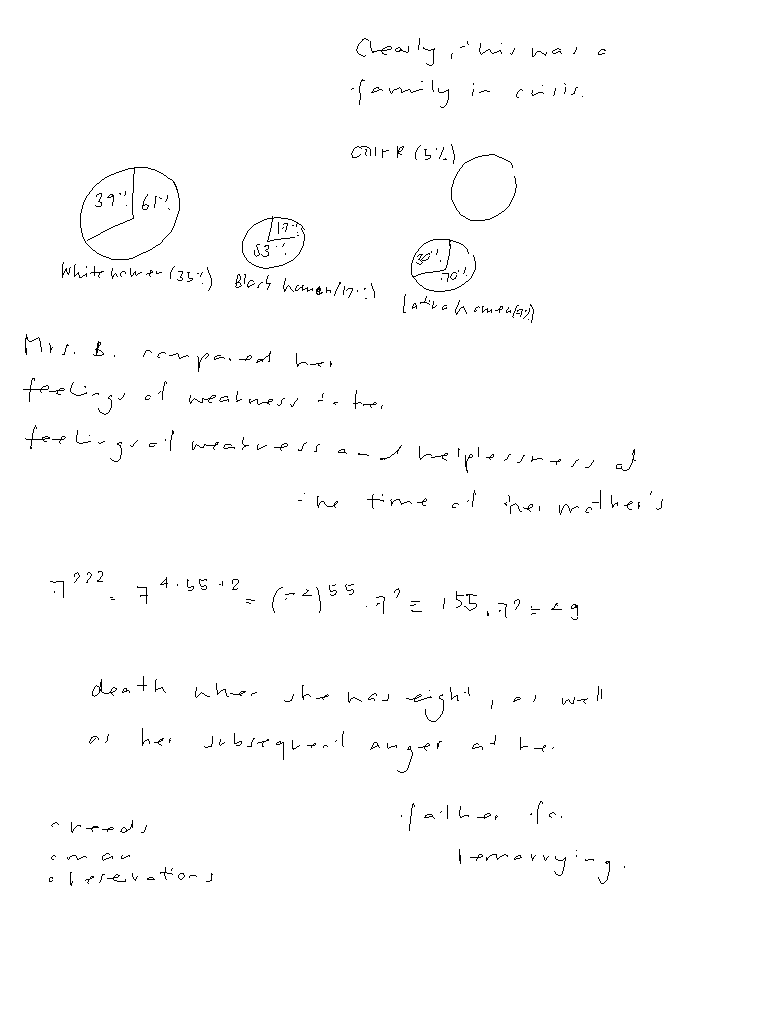 Clearly, this was a
family in crisis.
Other (5%)
39% 61%
17%
83%
30%
70%
White women (35%)
Black women (17%)
Latina women (9%)
Mrs. B. compared her
feelings of weakness to her
feelings of weakness and helplessness at
the time of her mother's
7^222 = 7^4·55+2 = (7^4)^55 · 7^2 ≡ 1^55 · 7^2 = 49
death when she was eight, as well
as her subsequent anger at her
father for
remarrying.
needs
observations